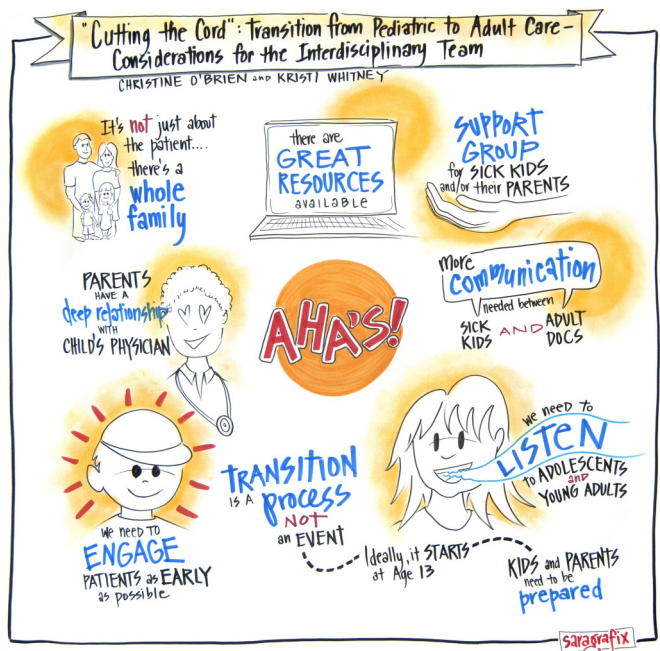 "Cutting the Cord": Transition from Pediatric to Adult Care-
Considerations for the Interdisciplinary Team
CHRISTINE O'BRIEN and KRISTI WHITNEY
It's not just about
the patient....
there's a
whole
family
there are
GREAT
RESOURCES
available
SUPPORT
GROUP
for SICK KIDS
and/or their PARENTS
PARENTS
HAVE A
deep relationship
WITH
CHILD'S PHYSICIAN
AHA'S!
more
communication
needed between
SICK
KIDS
AND
ADULT
DOCS
we need to
ENGAGE
PATIENTS as EARLY
as possible
TRANSITION
IS A process
NOT
an EVENT
Ideally, it STARTS
at Age 13
KIDS and PARENTS
need to be
prepared
we need to
LISTEN
to ADOLESCENTS
and
YOUNG ADULTS
saragrafix